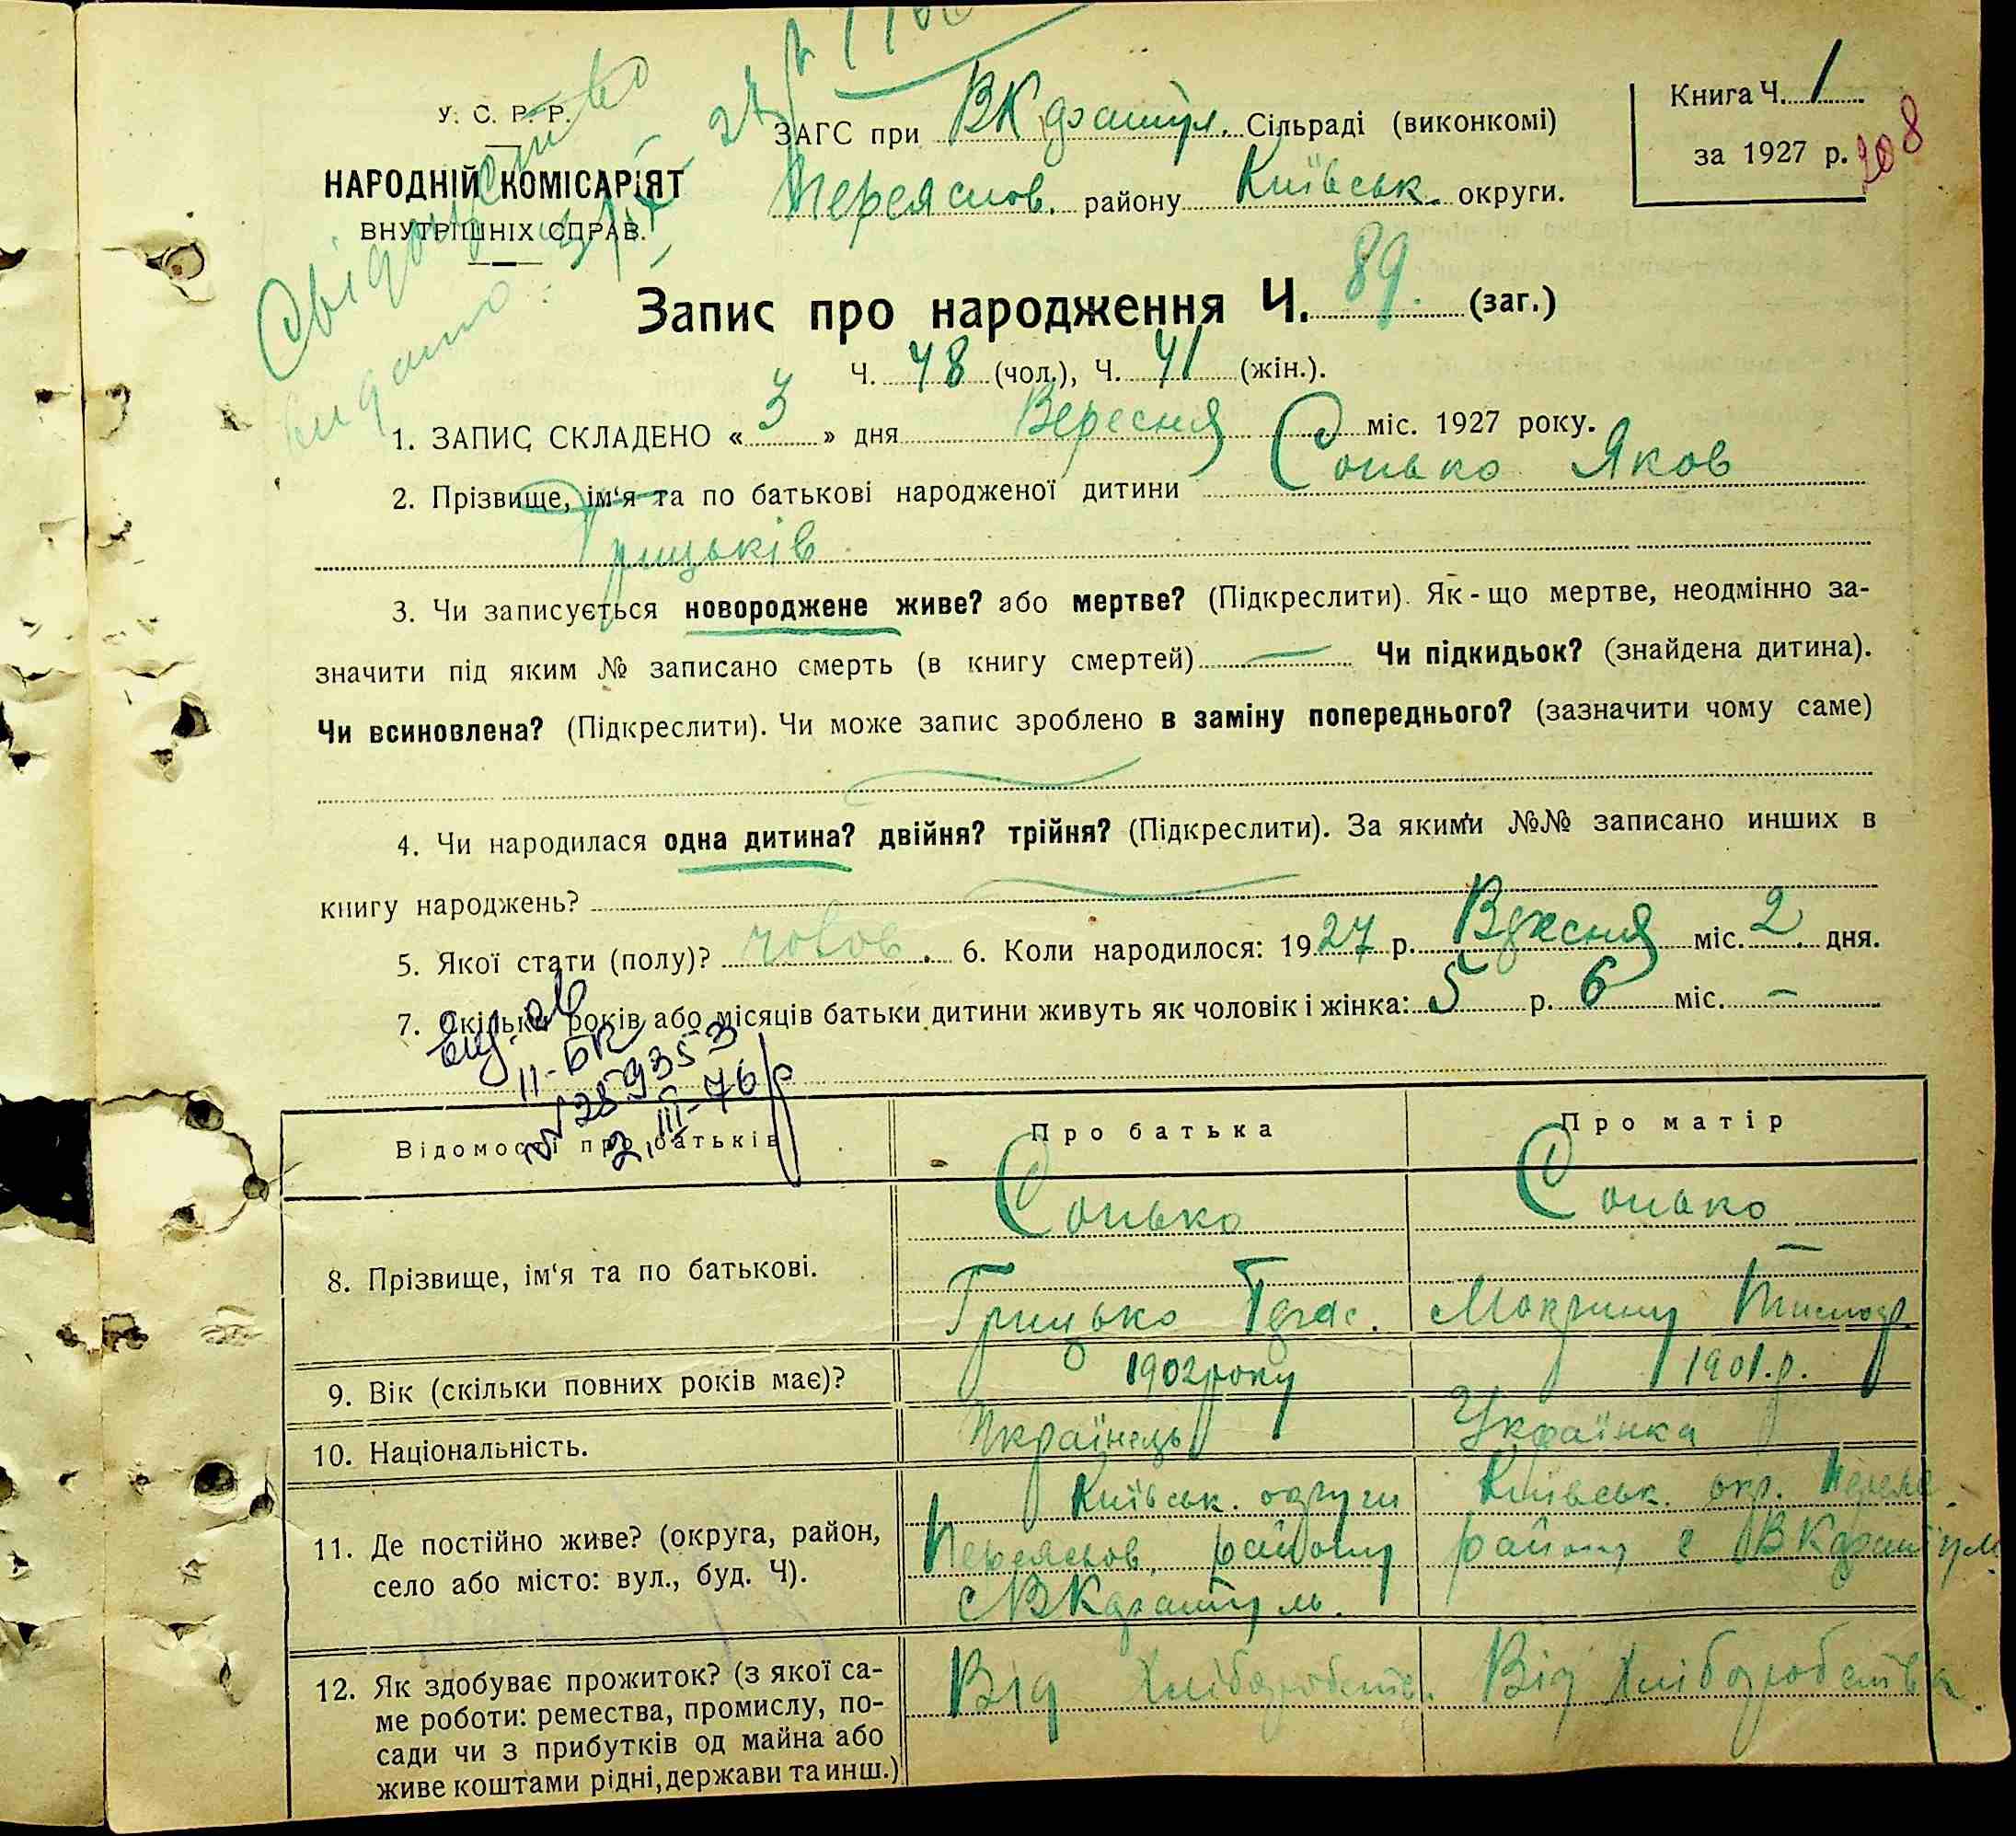 У. С. Р. Р.
НАРОДНІЙ КОМІСАРІЯТ
ВНУТРІШНІХ СПРАВ.
Свідоцтво
видано:
ЗАГС при ВКаратул. Сільраді (виконкомі)
Переяслов. району Київськ. округи.
Книга Ч. 1
за 1927 р.
208
Запис про народження Ч. 89. (заг.)
Ч. 48 (чол.), Ч. 41 (жін.).
1. ЗАПИС СКЛАДЕНО « 3 » дня Вересня міс. 1927 року.
2. Прізвище, ім‘я та по батькові народженої дитини Сонько Яков
Грицьків
3. Чи записується новороджене живе? або мертве? (Підкреслити). Як-що мертве, неодмінно за-
значити під яким № записано смерть (в книгу смертей) — Чи підкидьок? (знайдена дитина).
Чи всиновлена? (Підкреслити). Чи може запис зроблено в заміну попереднього? (зазначити чому саме)
4. Чи народилася одна дитина? двійня? трійня? (Підкреслити). За якими №№ записано инших в
книгу народжень?
5. Якої стати (полу)? чолов. 6. Коли народилося: 1927 р. Вересня міс. 2. дня.
7. Скільки років або місяців батьки дитини живуть як чоловік і жінка: 5 р. 6 міс. —
II-БК
2. III-76р
Відомості про батьків
Про батька
Про матір
8. Прізвище, ім‘я та по батькові.
Сонько
Грицько Тарас.
Сонько
9. Вік (скільки повних років має)?
1902 року
1901.р.
10. Національність.
Українець
Українка
11. Де постійно живе? (округа, район,
село або місто: вул., буд. Ч).
Київськ. округи
Переяслов. району
с ВКаратуль.
Київськ. окр. Переяс.
району с ВКаратул
12. Як здобуває прожиток? (з якої са-
ме роботи: ремества, промислу, по-
сади чи з прибутків од майна або
живе коштами рідні, держави та инш.)
Від Хліборобств.
Від Хліборобства.